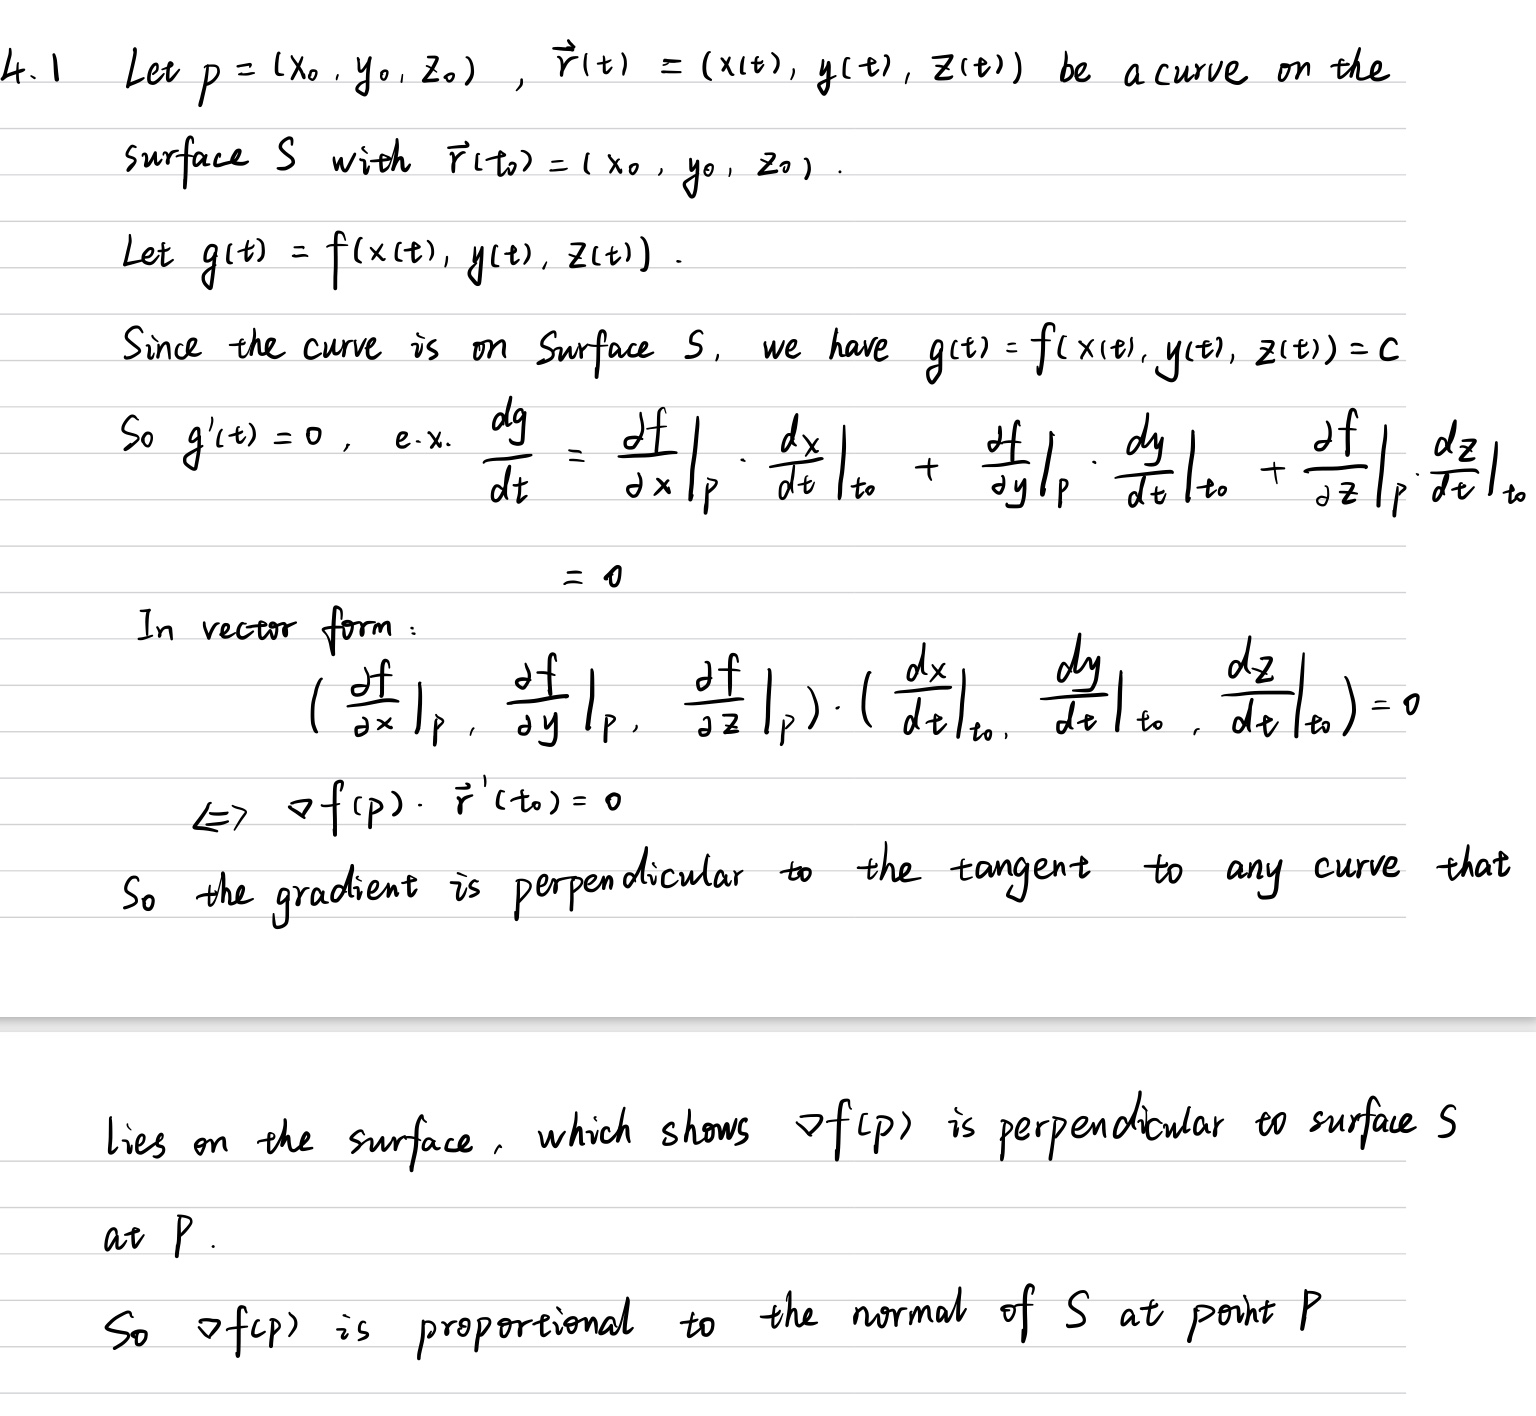 4.1 Let p = (x₀, y₀, z₀), r⃗(t) = (x(t), y(t), z(t)) be a curve on the
surface S with r⃗(t₀) = (x₀, y₀, z₀).
Let g(t) = f(x(t), y(t), z(t)).
Since the curve is on Surface S, we have g(t) = f(x(t), y(t), z(t)) = C
So g'(t) = 0, e.x. dg/dt = ∂f/∂x|p · dx/dt|t₀ + ∂f/∂y|p · dy/dt|t₀ + ∂f/∂z|p · dz/dt|t₀
= 0
In vector form:
(∂f/∂x|p, ∂f/∂y|p, ∂f/∂z|p) · (dx/dt|t₀, dy/dt|t₀, dz/dt|t₀) = 0
⇔ ∇f(p) · r⃗'(t₀) = 0
So the gradient is perpendicular to the tangent to any curve that
lies on the surface, which shows ∇f(p) is perpendicular to surface S
at P.
So ∇f(p) is proportional to the normal of S at point P